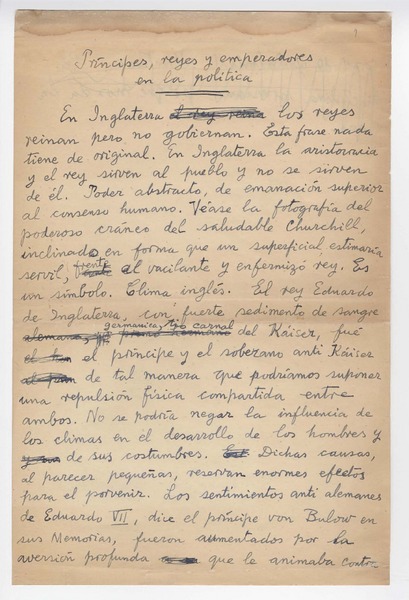 Príncipes, reyes y emperadores
en la política
En Inglaterra el rey reina los reyes
reinan pero no gobiernan. Esta frase nada
tiene de original. En Inglaterra la aristocracia
y el rey sirven al pueblo y no se sirven
de él. Poder abstracto, de emanación superior
al consenso humano. Véase la fotografía del
poderoso cráneo del saludable Churchill,
inclinado en forma que un superficial estimaría
servil, frente al vacilante y enfermizo rey. Es
un símbolo. Clima inglés. El rey Eduardo
de Inglaterra, con fuerte sedimento de sangre
germánica, tío carnal
alemana, primo hermano del Káiser, fué
el príncipe y el soberano anti Káiser
de tal manera que podríamos suponer
una repulsión física compartida entre
ambos. No se podría negar la influencia de
los climas en el desarrollo de los hombres y
de sus costumbres. Dichas causas,
al parecer pequeñas, reservan enormes efectos
para el porvenir. Los sentimientos anti alemanes
de Eduardo VII, dice el príncipe von Bulow en
sus Memorias, fueron aumentados por la
aversión profunda que le animaba contra-